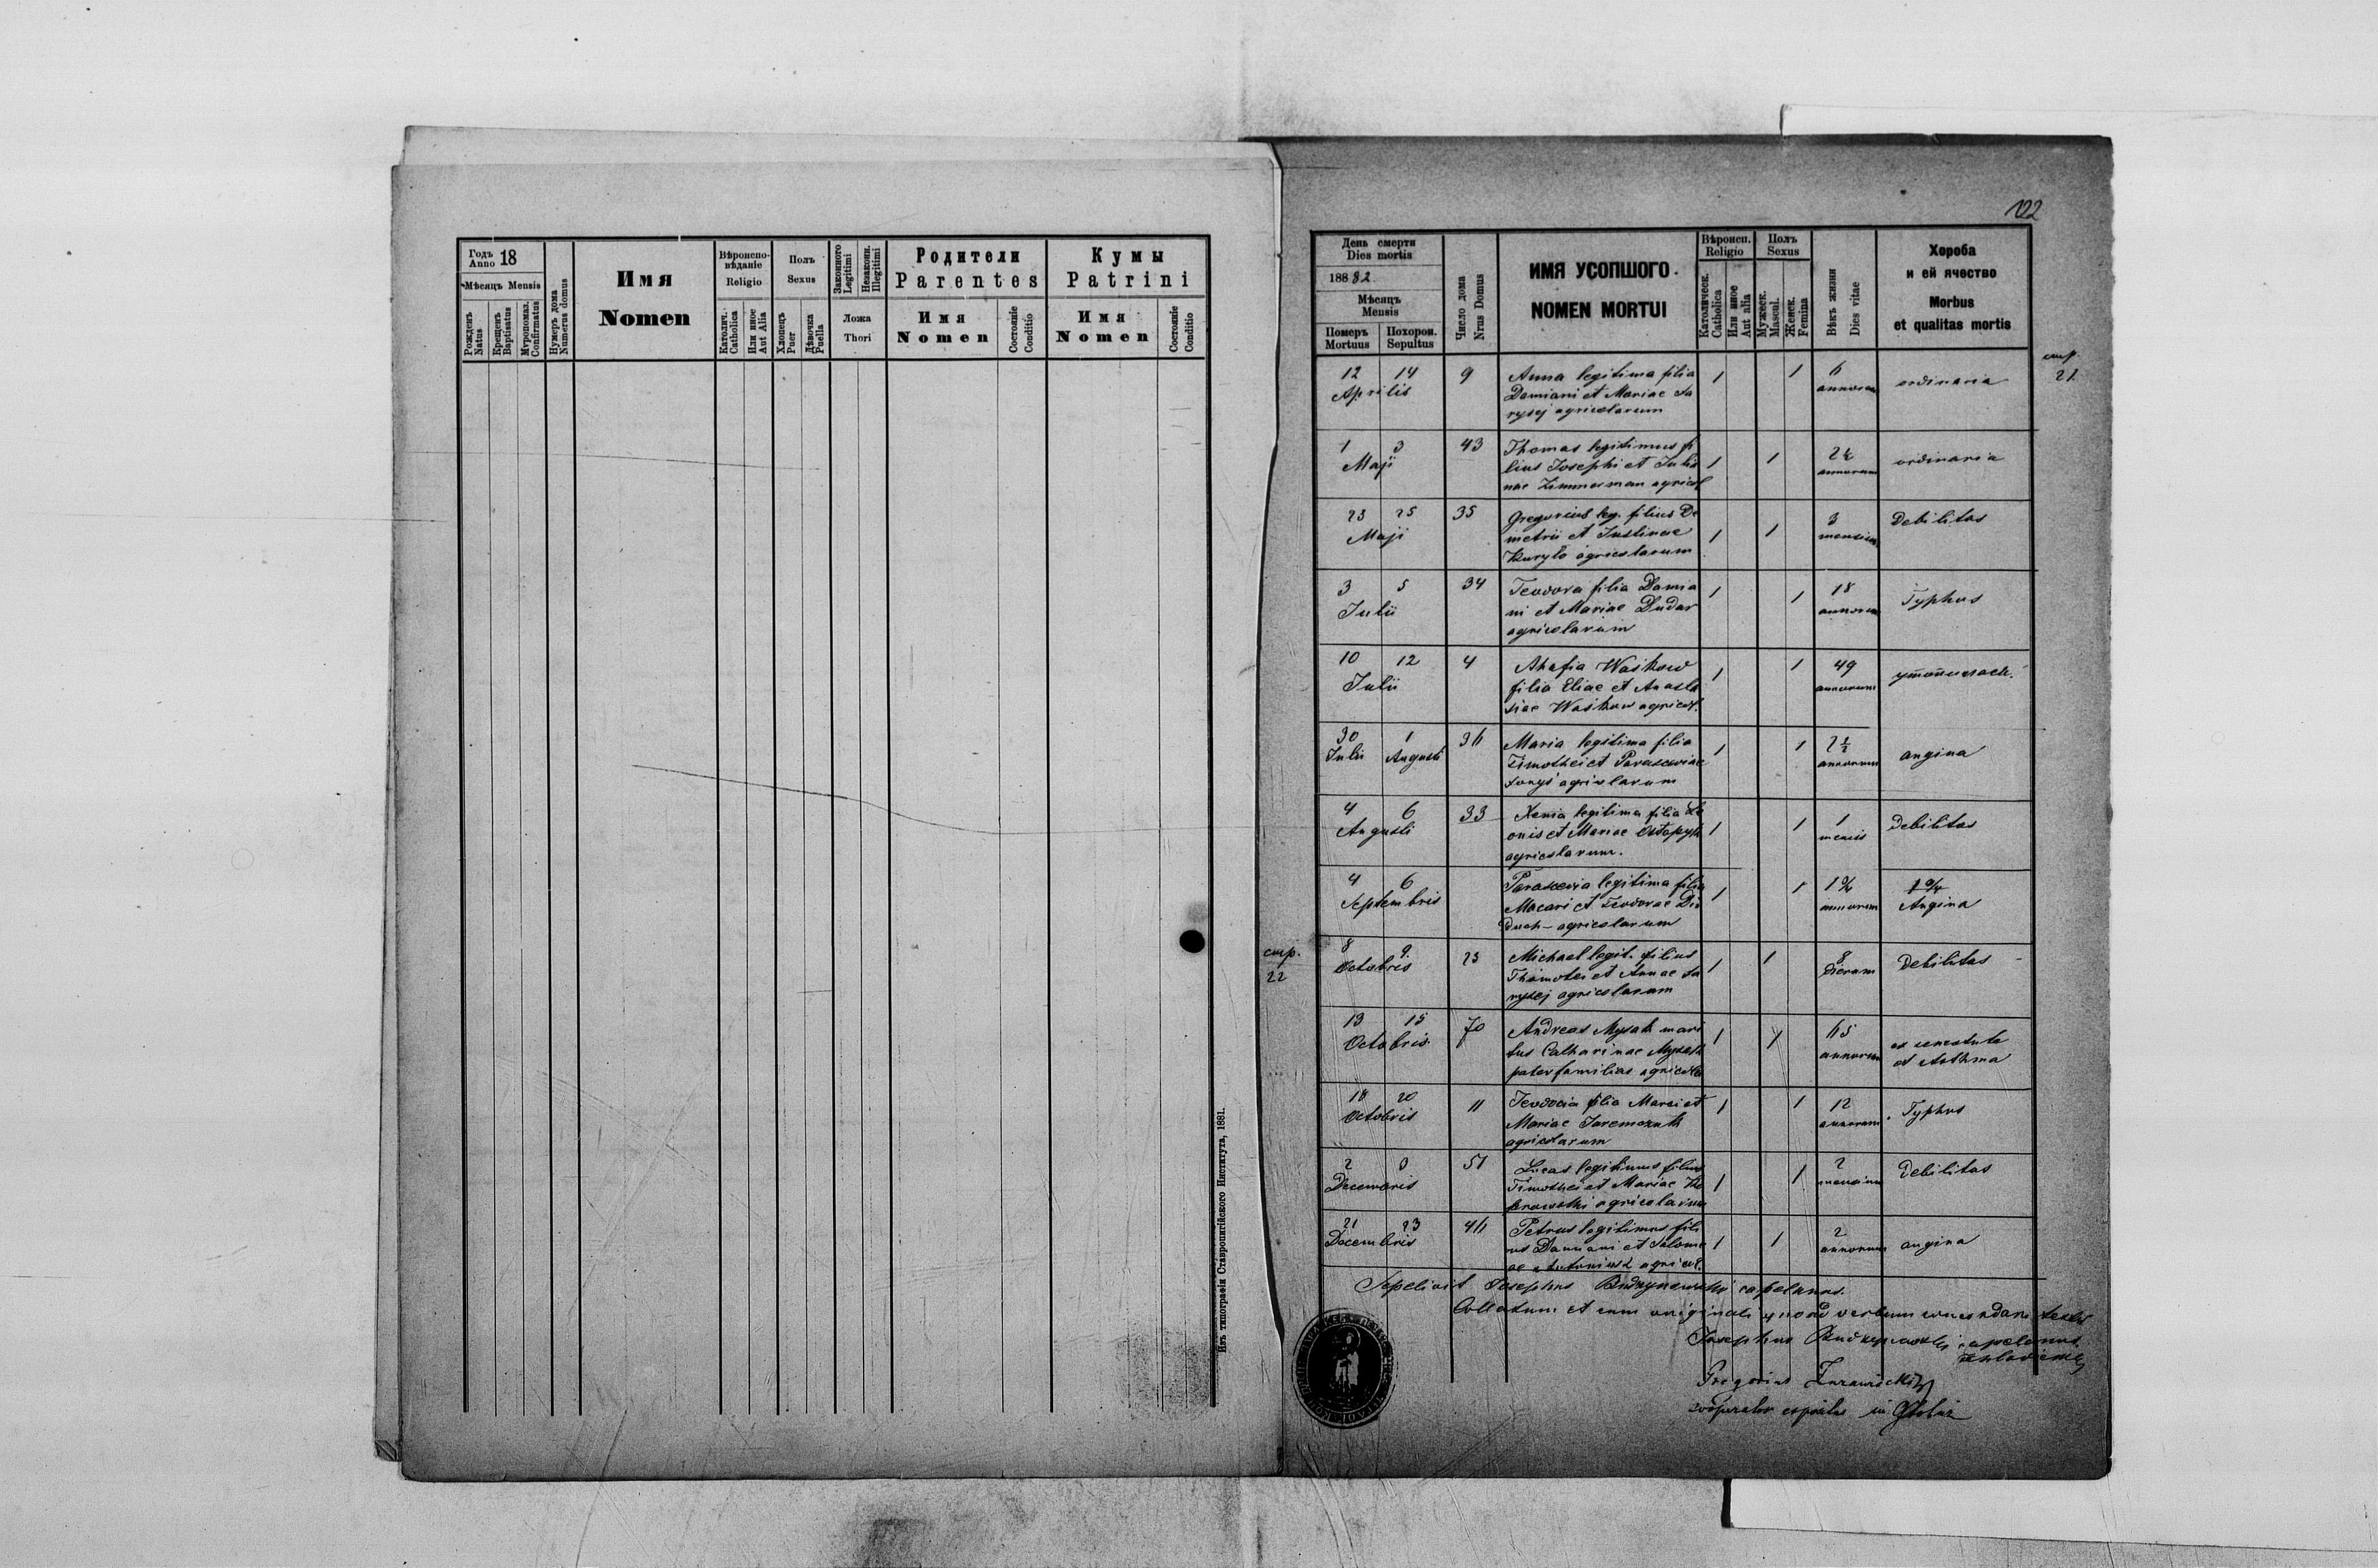 Годъ
Anno 18
Мѣсяцъ Mensis
Рожденъ
Natus
Крещенъ
Baptisatus
Мѵропомаз.
Confirmatus
Нумеръ дома
Numerus domus
Имя
Nomen
Вѣроиспо-
вѣданіе
Religio
Католич.
Catholica
Или иное
Aut Alia
Полъ
Sexus
Хлопецъ
Puer
Дѣвочка
Puella
Законного
Legitimi
Незаконн.
Illegitimi
Ложа
Thori
Родители
Parentes
Имя
Nomen
Состояніе
Conditio
Кумы
Patrini
Имя
Nomen
Состояніе
Conditio
Изъ типографіи Ставропигійского Института, 1881.
122
День смерти
Dies mortis
188 82
Мѣсяцъ
Mensis
Померъ
Mortuus
Похорон.
Sepultus
Число дома
Nrus Domus
ИМЯ УСОПШОГО
NOMEN MORTUI
Вѣроисп.
Religio
Католическ.
Catholica
Или иное
Aut alia
Полъ
Sexus
Мужеск.
Mascul.
Женск.
Femina
Вѣкъ жизни
Dies vitae
Хороба
и ей ячество
Morbus
et qualitas mortis
стр.
21
12 14 9 Anna legitima filia 1 1 6 ordinaria
Aprilis Damiani et Mariae Sa annorum
rysej agricolarum
1 3 43 Thomas legitimus fi
Maji lius Josephi et Julia 1 1 2½ annorum ordinaria
nae Zimmerman agricol
23 25 35 Gregorius leg. filius De 3 Debilitas
Maji metrii et Justinae 1 1 mensium
Kuryło agricolarum
3 5 34 Teodora filia Damia 1 1 18 Typhus
Julii ni et Mariae Dudar annorum
agricolarum
10 12 4 Ahafia Waśkow 1 1 49
Julii filia Eliae et Anasta annorum
siae Waśkow agricol.
30 1 36 Maria legitima filia 1 1 2½ angina
Julii Augusti Timothei et Parasceviae annorum
agricolarum
4 6 33 Xenia legitima filia Le
Augusti onis et Mariae Ostapyk 1 1 1 mensis Debilitas
agricolarum.
4 6 Parascevia legitima filia 1 1
Septembris Macari et Teodorae Di annorum Angina
duch agricolarum
стр.
22
8 9 23 Michael legit. filius 1 1 8 Debilitas
Octobris Thimotei et Annae Sa dierum
rysej agricolarum
13 15 70 Andreas Mysak mari 1 1 65 ex senectute
Octobris tus Catharinae Mysak annorum et Asthma
paterfamilias agricola
18 20 11 Teodosia filia Marci et 1 1 12 Typhus
Octobris Mariae Jaremczuk annorum
agricolarum
2 51 Lucas legitimus filius 2 Debilitas
Decembris Timothei et Mariae 1 1 mensium
agricolarum
21 23 46 Petrus legitimus fili 2
Decembris us Damiani et Salome 1 1 annorum angina
ae Antoniuk agricol.
Sepelivit Josephus capelanus.
Collatum et cum originali quoad verbum concordare testor
Josephus capelanus
Gregorius Zurawiecki
cooperator